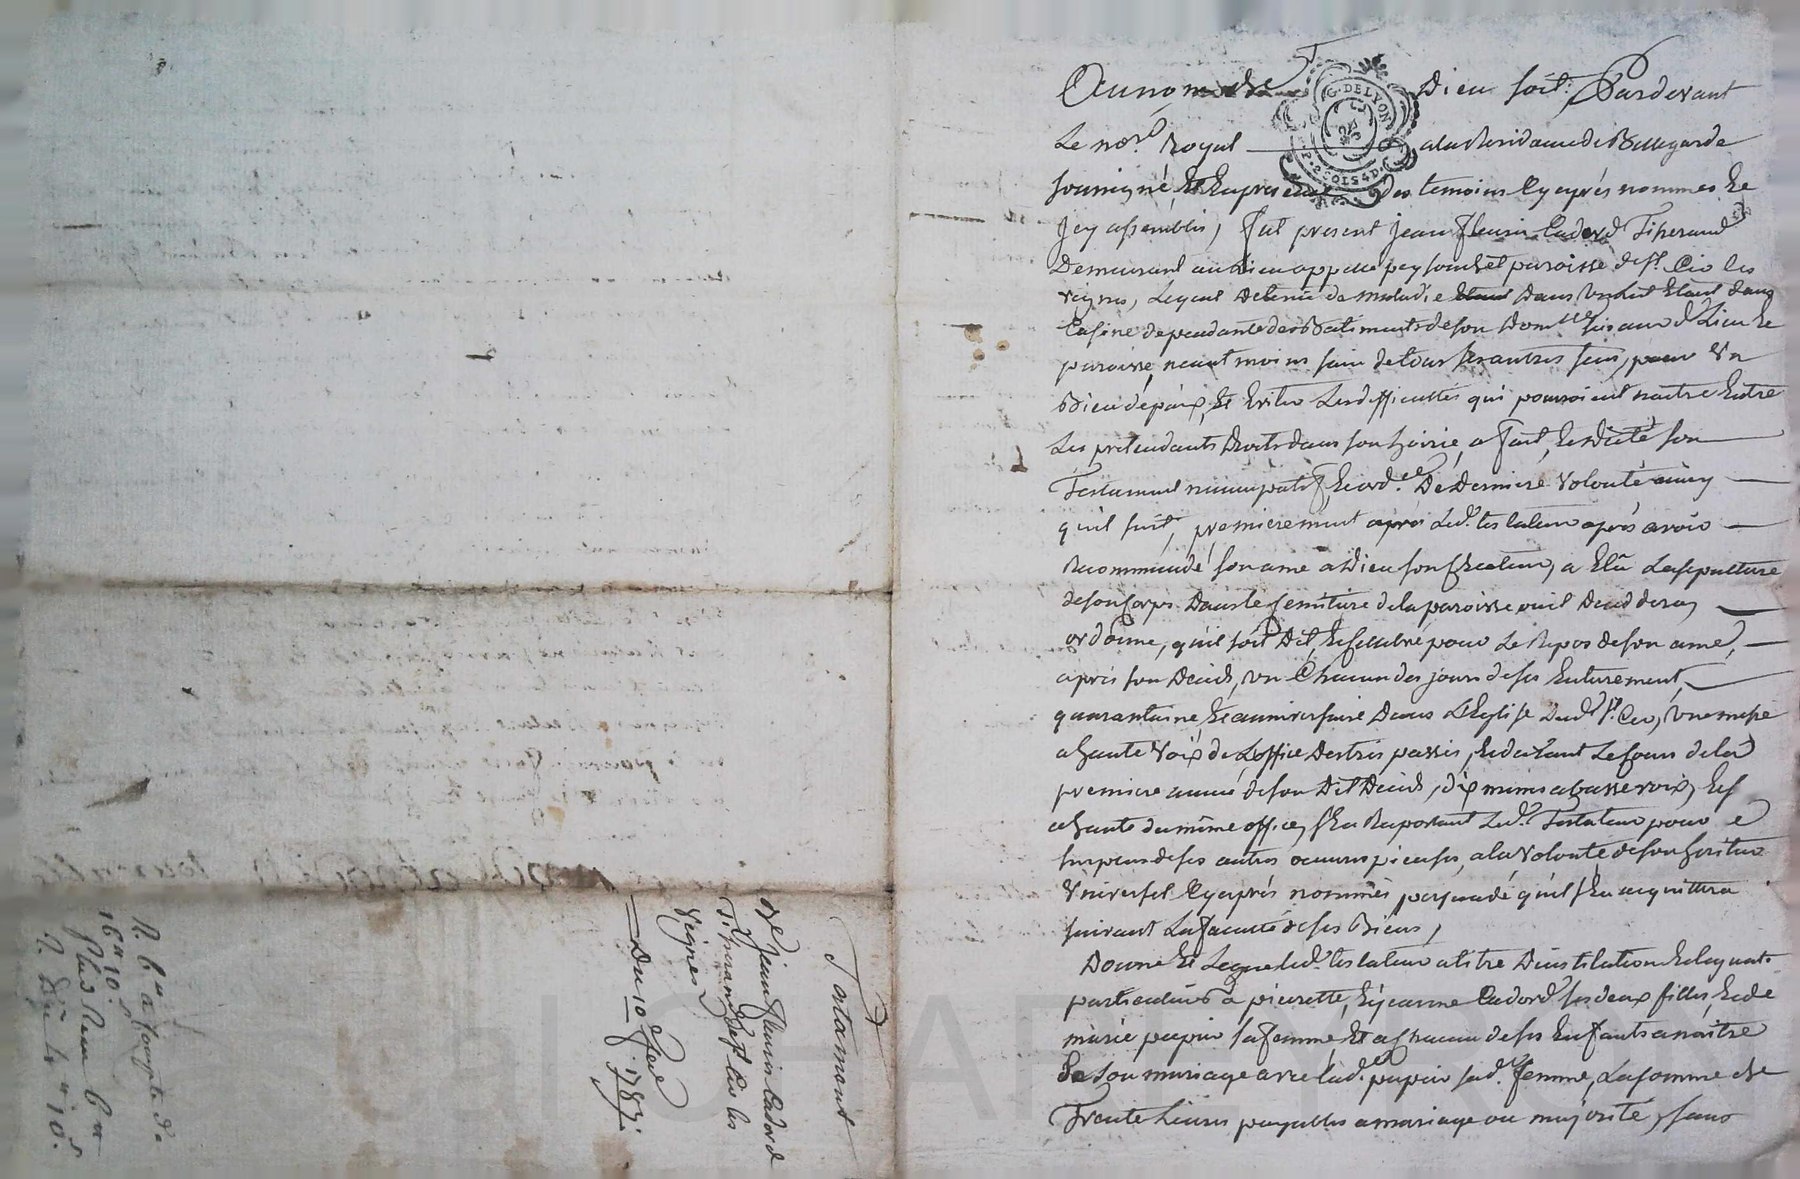 Au nom de Dieu soit, Pardevant
Le no.re Royal a la Residance de Bellegarde
soussigné, Et En presence des temoins Cy après nommés Et
Icy assemblés, fut present jean fleury Cadord Tisserand
Demeurant au Lieu appellé paroisse de St. Cir les
vignes, Lequel detenu de maladie Dans un lit Etant dans
Cuisine dependante des Batiments de son Domicille sis aud. Lieu Et
paroisse, neant moins sain de tous ses autres sens, pour Un
Bien de paix, Et Eviter Les difficultés qui pourroient naitre Entre
Les pretendants Droits dans son hoirie, a fait, Et Dicté son
Testament nuncupatif Et ord.ce De Derniere Volonté ainsy
quil suit, premierement Led. testateur après avoir
Recommandé son ame a Dieu son Createur, a Elû La sepulture
de son Corps Dans le semitiere de la paroisse ou il Deceddera,
ordonne, qu'il soit Dit, Et Cellebré pour Le Repos de son ame,
après son Decés, un Chacun des jours de ses Enterrement,
quarantaine Et anniversaire Dans L'Eglise Dud. St. Cir, Une messe
a haute Voix de L'office Des trés passés, Et durant Le Cours de la
premiere année de son Dit Decés, dix messes a basse voix, Et
a haute du même office, S'En Raportant Led. Testateur pour
Surplus de ses autres oeuvres pieuses, a la Volonté de son heritier
Universel Cy après nommés persuadé qu'il S'En acquittera
suivant La faculté de ses Biens,
Donne Et Legue Led. testateur a titre D'institution Et legat
particuliers a pierrette, Et jeanne Cadord ses deux filles, Et de
marie pupier sa femme, Et a Chacun de ses Enfants a naitre
De Son mariage avec lad. pupier sad. femme, La somme de
Trente Livres payables a mariage ou majorité, sans
Testament
De Jean fleury Cadord
Tisserand de St. Cir les
Vignes
Du 10
1787.
R. 6 a Compte de
16 10.
Plus Recu 6
R. Dû 4 10.